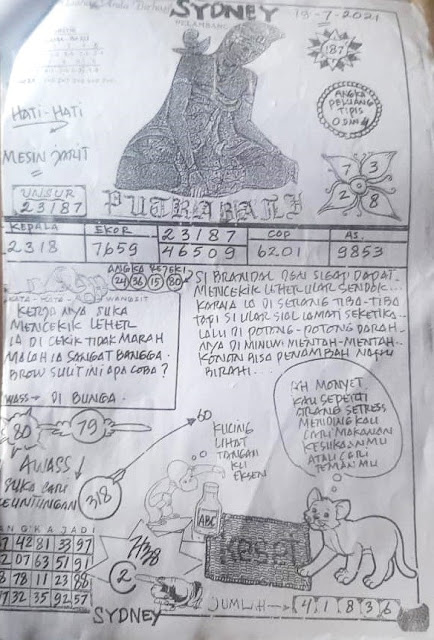 SYDNEY
18-7-2021
PELAMBANG
187
HATI-HATI
MESIN JAHIT
ANGKA
PELUANG
TIPIS
0 DAN 4
7 3
2 8
UNSUR
23187
PUTRABALI
KEPALA
2318
EKOR
7659
23187
46509
COP
6201
AS
9853
ANGKA REJEKI
24 36 15 80
KATA-KATA WANGSIT
KERJA NYA SUKA
MENCEKIK LEHER
IA DI CEKIK TIDAK MARAH
MALAH IA SANGAT BANGGA.
BROW SULIT INI APA COBA?
WASS→ DI BUNGA.
SI BRANDAL DGN SIGAP DAPAT
MENCEKIK LEHER ULAR SENDOK...
KARNA IA DI SERANG TIBA-TIBA
TAPI SI ULAR SIAL LAMAT SEKETIKA
LALU DI POTONG-POTONG DARAH
NYA DI MINUM MENTAH-MENTAH
KONON BISA PENAMBAH NAFSU
BIRAHI...
80
79
60
AWASS
SUKA CARI
KEUNTUNGAN
318
KUCING
LIHAT
TANGAN
KU
EKSEN
AH MONYET
KAU SEPERTI
ORANG SETRESS
MENDING KAU
CARI MAKANAN
KESUKAANMU
ATAU CARI
TEMAN MU
ABC
Keset
ANGKA JADI
7 42 81 33 97
2 07 63 51 91
8 78 11 23 88
17 32 35 92 57
2
SYDNEY
JUMLAH → 4 1 8 3 6